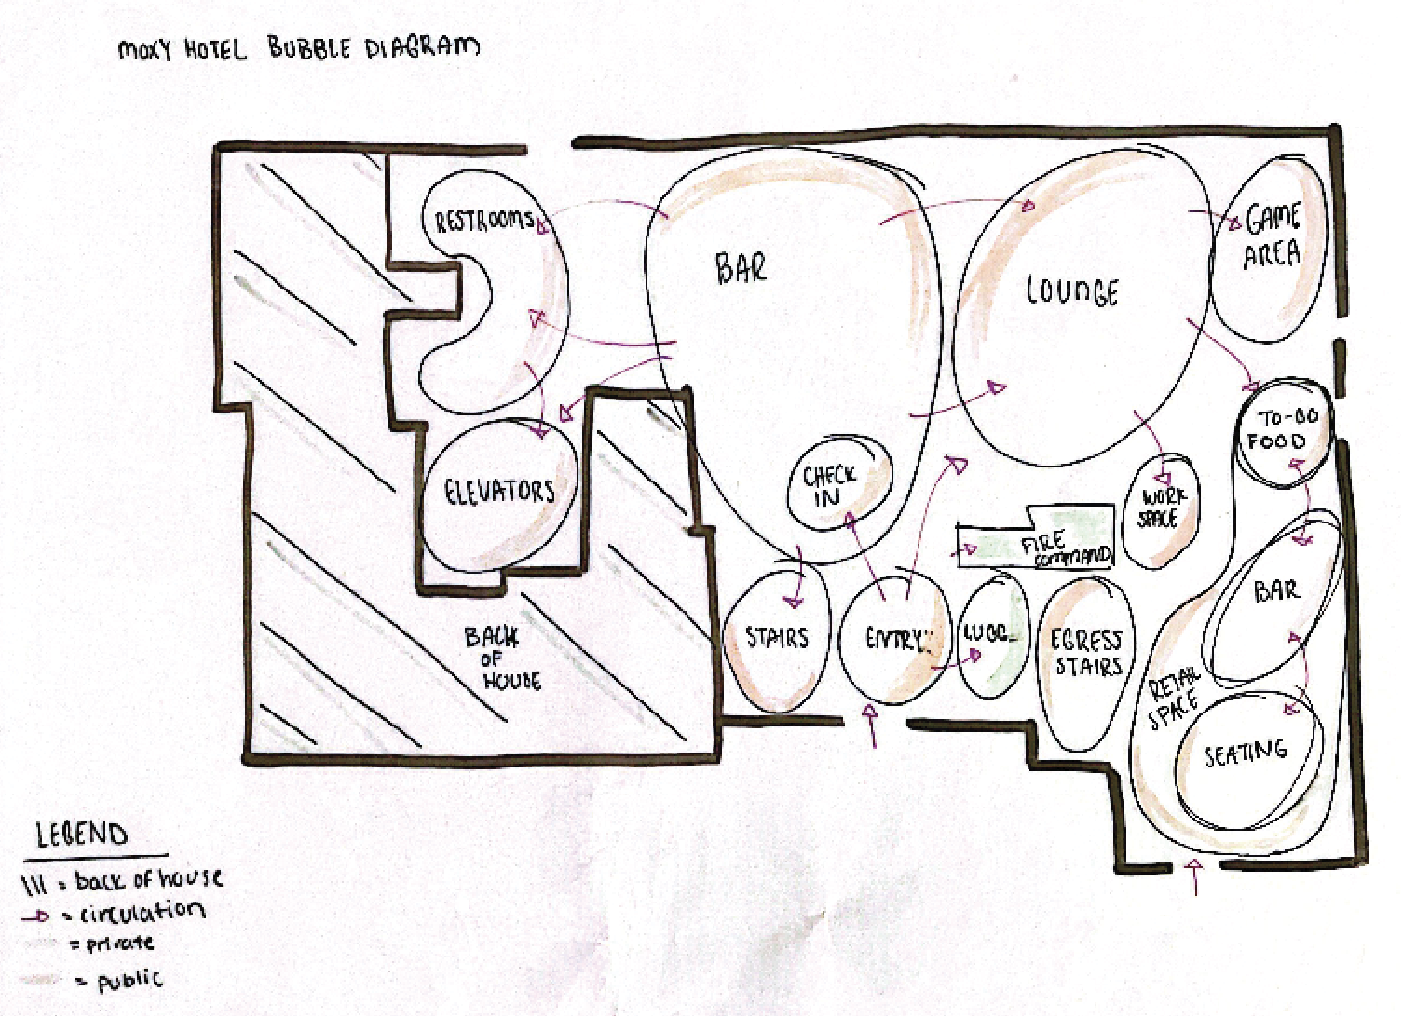 MOXY HOTEL BUBBLE DIAGRAM
RESTROOMS
BAR
LOUNGE
GAME
AREA
TO-GO
FOOD
CHECK
IN
ELEVATORS
WORK
SPACE
FIRE
COMMAND
BAR
STAIRS
ENTRY
LUGG
EGRESS
STAIRS
BACK
OF
HOUSE
RETAIL
SPACE
SEATING
LEGEND
= back of house
= circulation
= private
= public